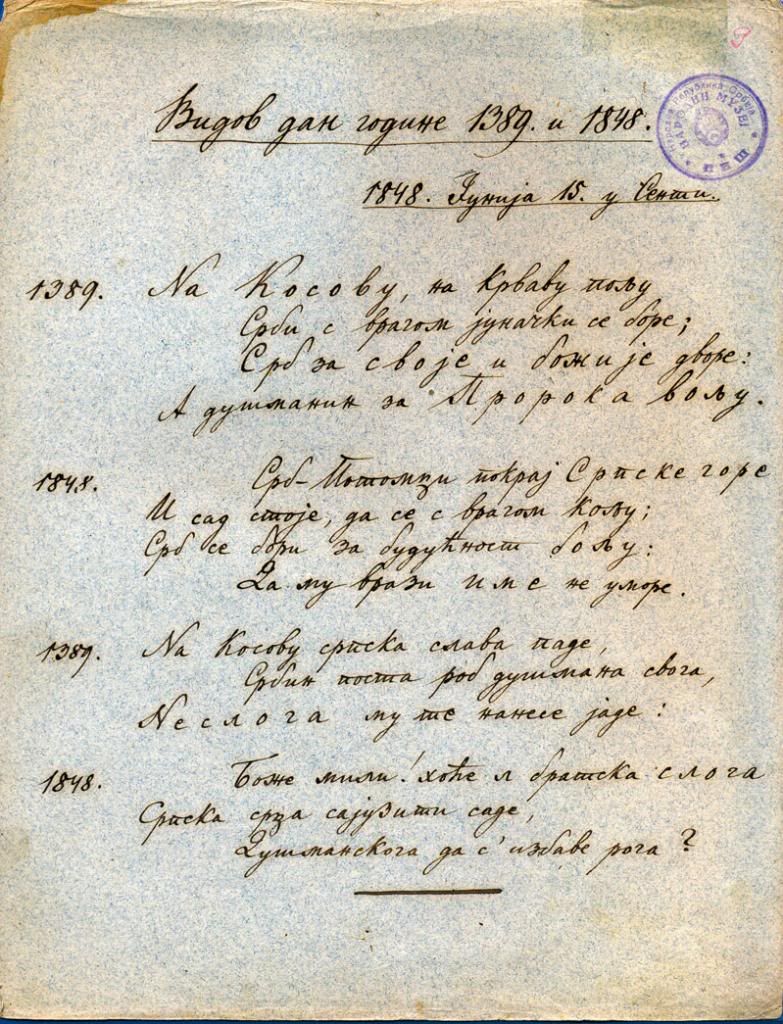 Видов дан године 1389. и 1848.
НАРОДНИ МУЗЕЈ
1848. Јунија 15. у Сенти.
1389. На Косову, на Крваву пољу
Срби с врагом јуначки се боре;
Срб за своје и божије дворе:
А душманин за Пророка вољу.
1848. Срб-Потомци покрај Српске горе
И сад стоје, да се с врагом кољу;
Срб се бори за будућност бољу:
Да му врази име не уморе.
1389. На Косову српска слава паде,
Србин поста роб душмана свога,
Неслога му те нанесе јаде:
1848. Боже мили! хоће л братска слога
Српска срца сајузити саде,
Душманскога да с' избаве рога?